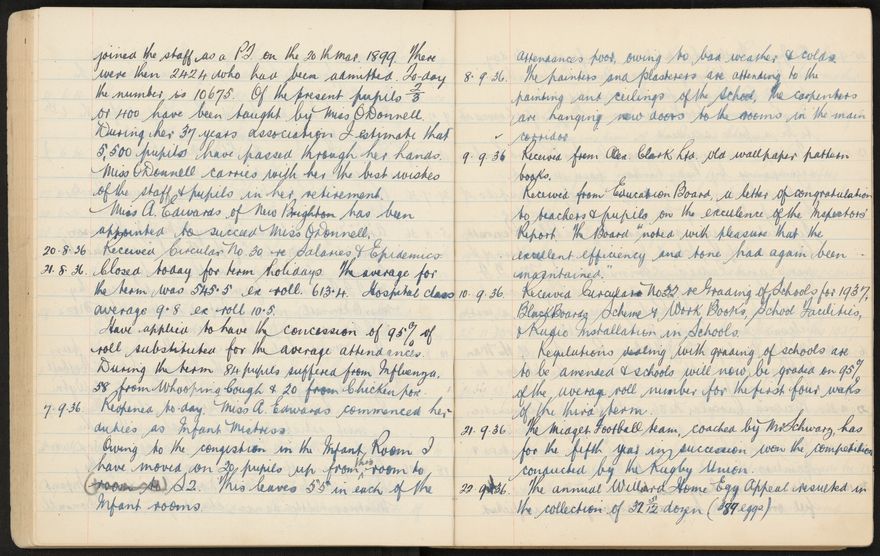 joined the staff as a P.T. on the 20th Mar. 1899. There
were then 2424 who had been admitted. To-day
the number is 10675. Of the present pupils 2/3
or 400 have been taught by Miss O'Donnell.
During her 37 years association I estimate that
5,500 pupils have passed through her hands.
Miss O'Donnell carries with her the best wishes
of the staff & pupils in her retirement.
Miss A. Edwards of New Brighton has been
appointed to succeed Miss O'Donnell.
20.8.36 Received Circular No. 30 re Salaries & Epidemics
21.8.36. Closed today for term holidays. The average for
the term was 545.5 ex roll. 613.4. Hospital class
average 9.8 ex roll 10.5.
Have applied to have the concession of 95% of
roll substituted for the average attendances.
During the term 84 pupils suffered from Influenza,
58 from Whooping Cough & 20 from Chicken pox.
7.9.36. Reopened to-day. Miss A. Edwards commenced her
duties as Infant Mistress.
Owing to the congestion in the Infant Room I
have moved on 20 pupils up from this room to
S2. This leaves 55 in each of the
Infant rooms.
attendances poor, owing to bad weather & colds.
8.9.36. The painters and plasterers are attending to the
painting and ceilings of the School, the carpenters
are hanging new doors to the rooms in the main
corridor
9.9.36 Received from Clark Ltd, old wallpaper pattern
books.
Received from Education Board, a letter of congratulation
to teachers & pupils, on the excellence of the Inspectors'
Report. The Board "noted with pleasure that the
excellent efficiency and tone had again been
maintained."
10.9.36. Received Circulars No 32 re Grading of Schools for 1937,
Blackboards, Scheme & Work Books, School Facilities,
& Radio Installation in Schools.
Regulations dealing with grading of schools are
to be amended & schools will now be graded on 95%
of the average roll number for the first four weeks
of the third term.
21.9.36 The Midget Football team, coached by Mr Schwarz, has
for the fifth year in succession won the competition
conducted by the Rugby Union.
22.9.36. The annual Willard Home Egg Appeal resulted in
the collection of 32 5/12 dozen (389 eggs)